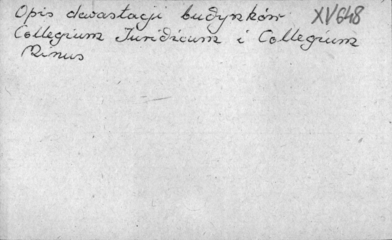 Opis dewastacji budynków XV648
Collegium Juridicum i Collegium
Minus